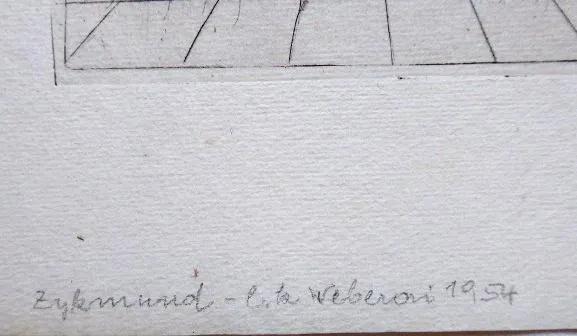 Zykmund - Weberovi 1954